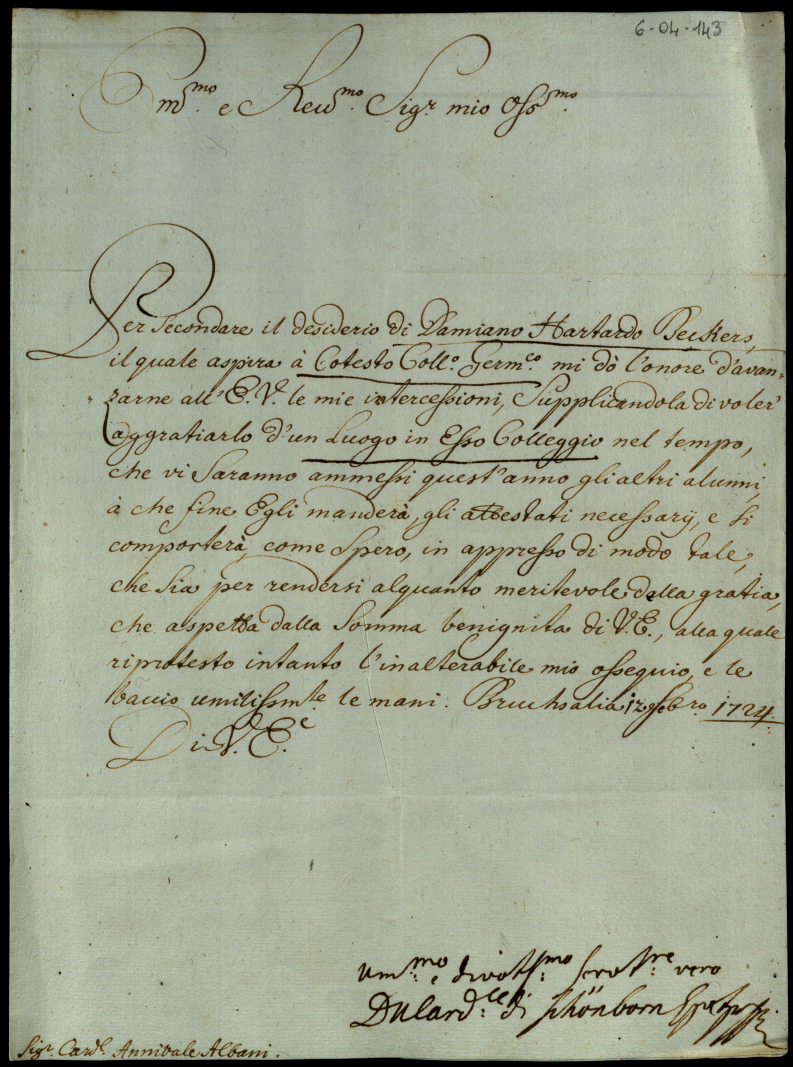 6-04-143
Em.^mo e Reu.^mo Sig.^r mio Oss.^mo
Per Secondare il desiderio di Damiano Hartardo Beckers,
il quale aspira à Cotesto Coll.^o Germ.^co mi dò l'onore d'avan=
zarne all'E.V. le mie intercessioni, Supplicandola di voler'
aggratiarlo d'un Luogo in Esso Colleggio nel tempo,
che vi Saranno ammessi quest'anno gli altri alunni,
à che fine Egli manderà, gli attestati necessarÿ, e si
comporterà, come Spero, in appresso di modo tale,
che Sia per rendersi alquanto meritevole della gratia,
che aspetta dalla Somma benignita di V.E., alla quale
riprotesto intanto l'inalterabile mio ossequio, e le
baccio umilissm^te. le mani. Bruchsalia 12 febro 1724.
Di V.E.^e
Um.^mo e divotss.^mo serv.^re vero
D Card.^le di Schönborn
Sig.^r Card.^l Annibale Albani.